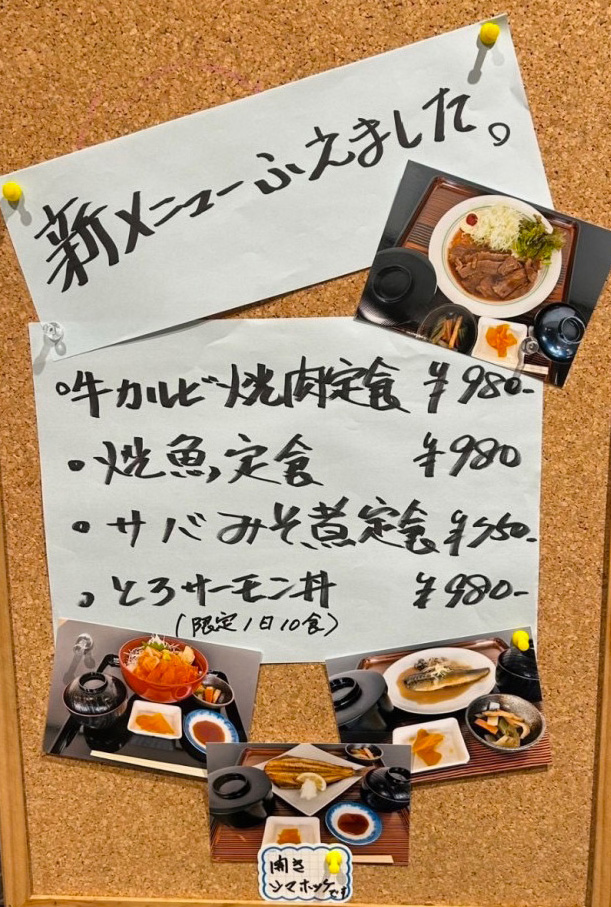 新メニューふえました。
・牛カルビ焼肉定食 ¥980-
・焼魚定食 ¥980
・サバみそ煮定食 ¥950-
・とろサーモン丼 ¥980-
(限定1日10食)
開き
シマホッケです